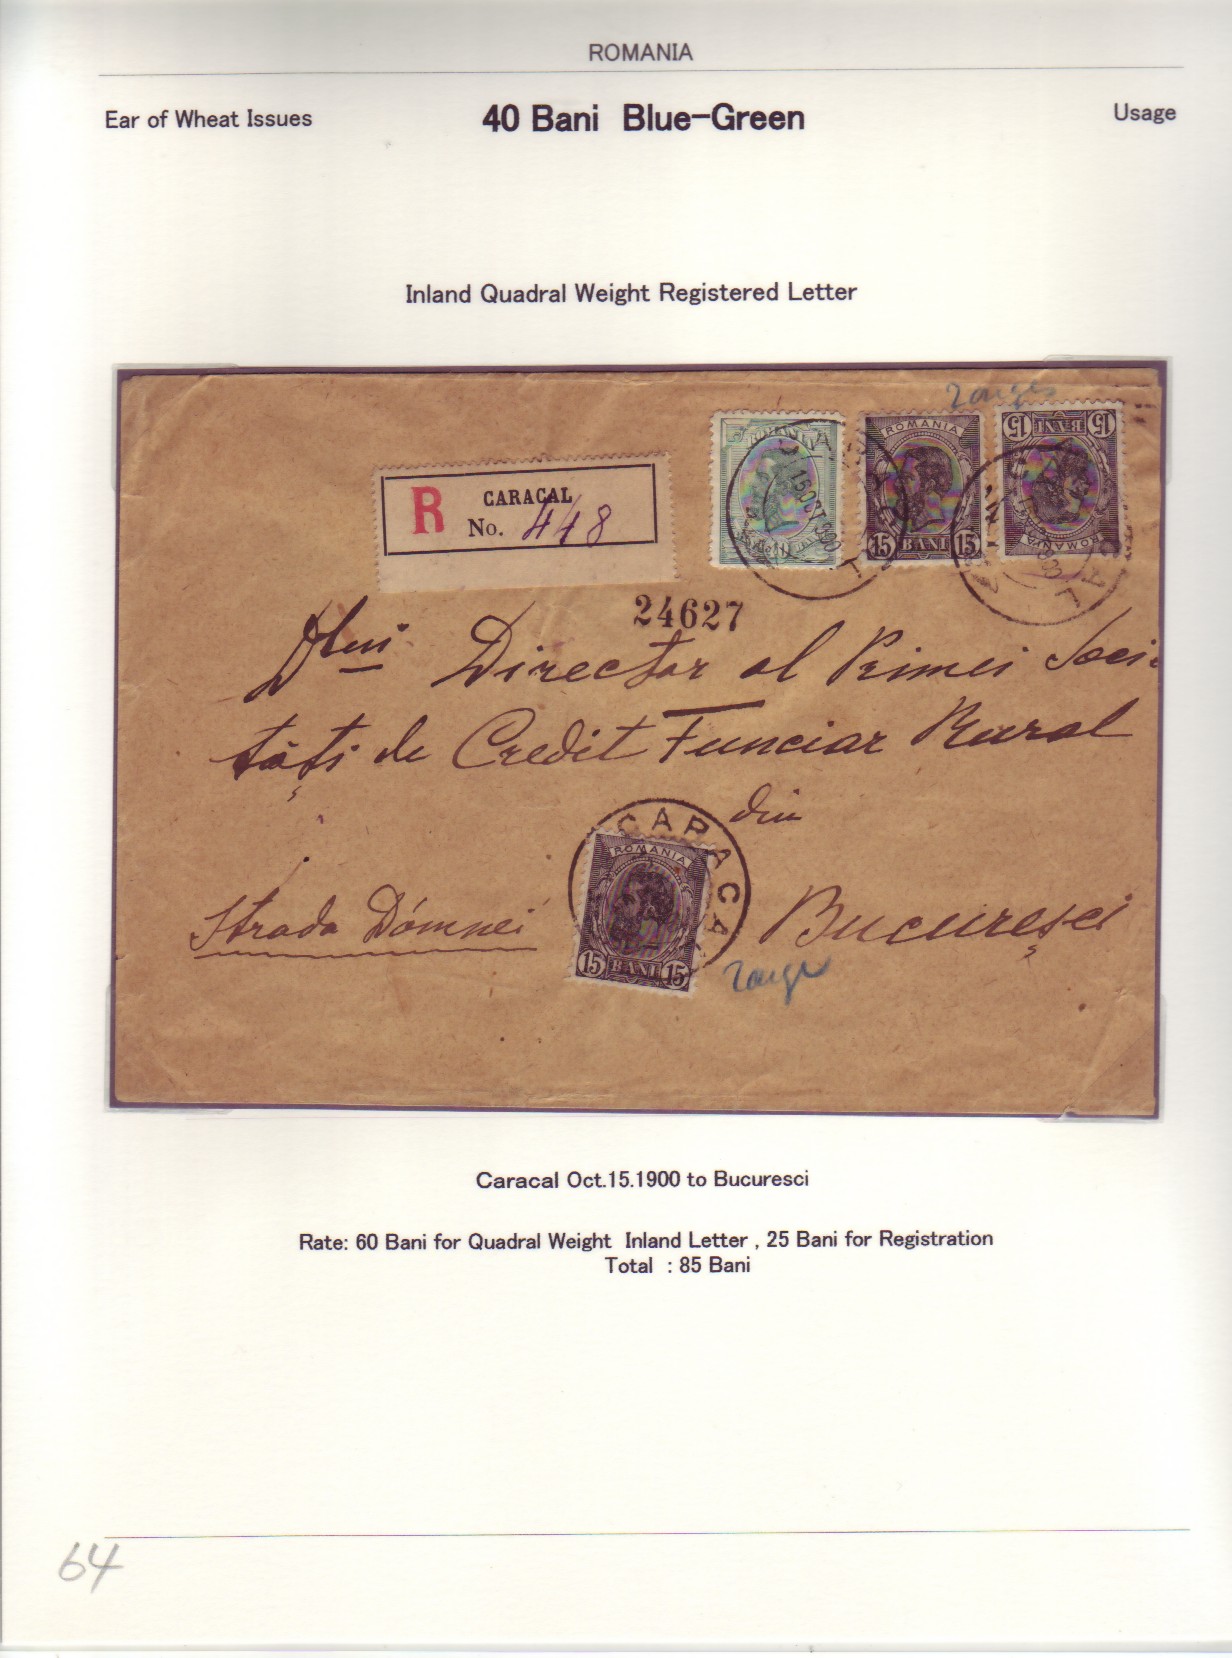 ROMANIA
Ear of Wheat Issues 40 Bani Blue-Green Usage
Inland Quadral Weight Registered Letter
R CARACAL
No. 448
ROMANIA
15 BANI 15
15 BANI 15
ROMANIA
15 OCT 900
24627
Dlui Director al Primei Soci-
tăți de Credit Funciar Rural
din
CARACAL
ROMANIA
15 BANI 15
Strada Dómnei Bucureşci
Caracal Oct.15.1900 to Bucuresci
Rate: 60 Bani for Quadral Weight Inland Letter , 25 Bani for Registration
Total : 85 Bani
64